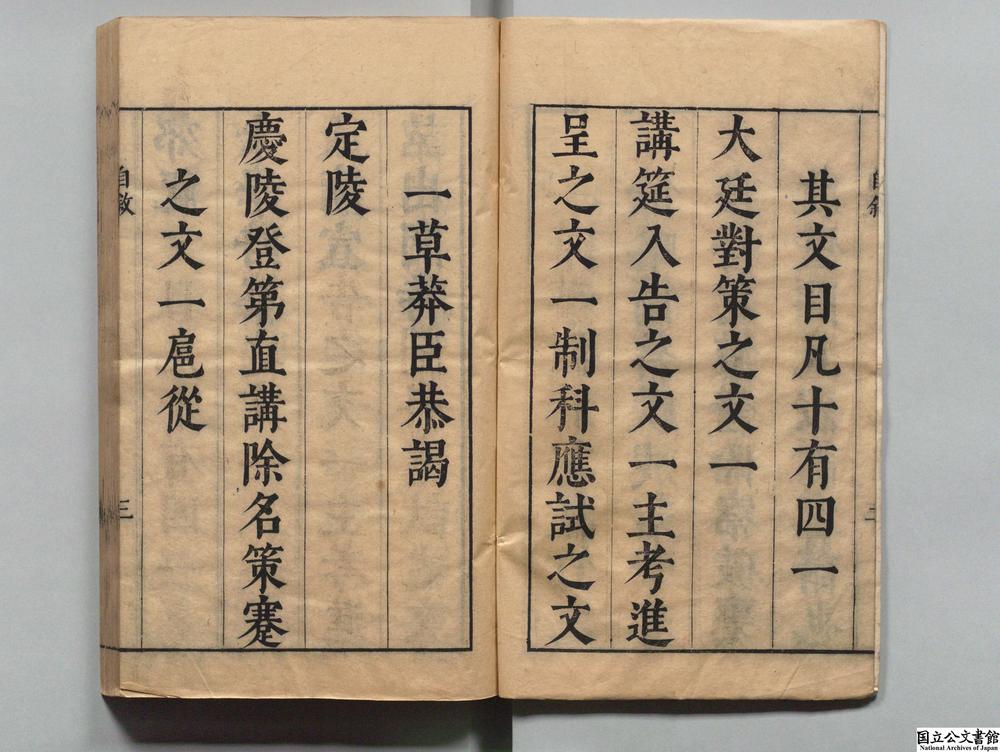 其文目凡十有四一
大廷對策之文一
講筵入告之文一主考進
呈之文一制科應試之文
一草莽臣恭謁
定陵
慶陵登第直講除名策蹇
之文一扈從
自敘
三
国立公文書館
National Archives of Japan